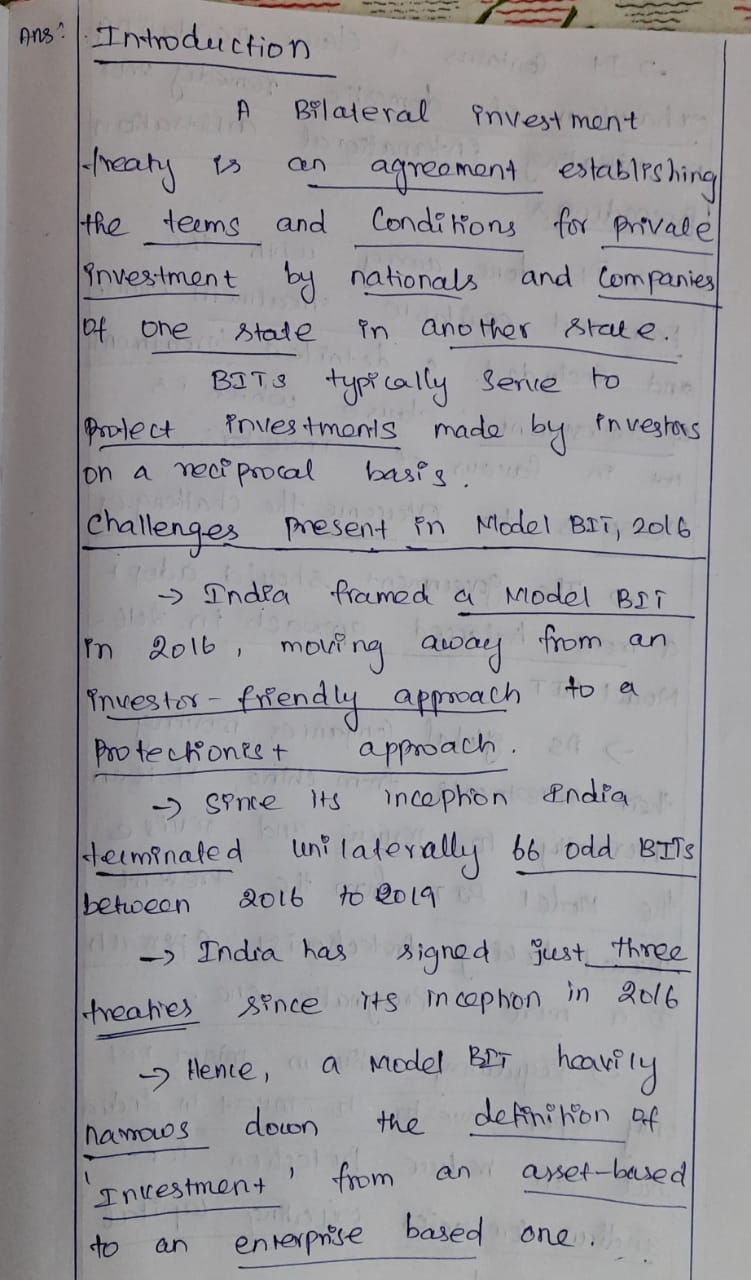 Ans: Introduction
A Bilateral investment
treaty is an agreement establishing
the teems and Conditions for private
investment by nationals and Companies
of one state in another state.
BITs typically serve to
protect investments made by investors
on a reciprocal basis.
Challenges present in Model BIT, 2016
→ India framed a Model BIT
in 2016, moving away from an
investor-friendly approach to a
protectionist approach.
→ Since its inception India
terminated unilaterally 66 odd BITs
between 2016 to 2019
→ India has signed just three
treaties since its inception in 2016
→ Hence, a Model BIT heavily
narrows down the definition of
'Investment' from an asset-based
to an enterprise based one.